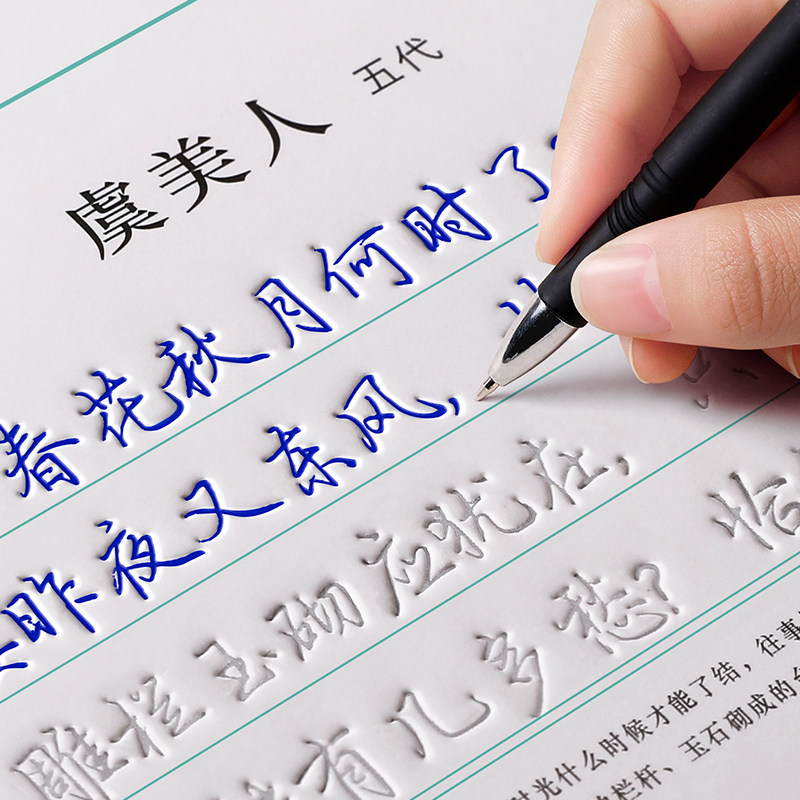 虞美人 五代
春花秋月何时了
昨夜又东风,
雕栏玉砌应犹在,
有几多愁? 恰
时光什么时候才能了结，往事
栏杆、玉石砌成的